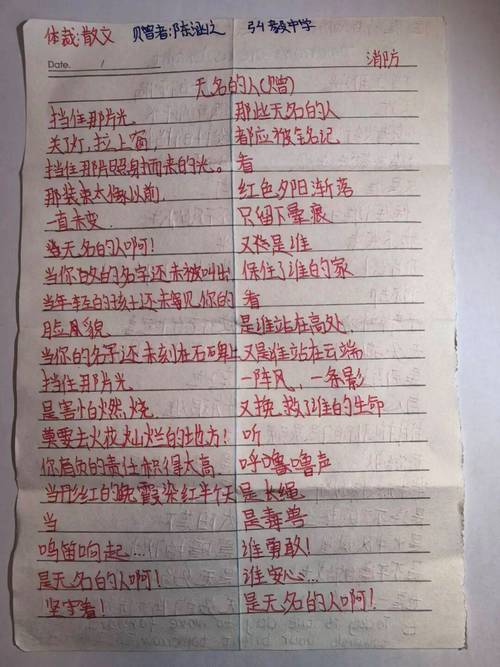 体裁:散文 赠者:陈涵 弘毅中学
Date. 消防
无名的人(赠)
挡住那片光
关了灯,拉上窗
挡住那片照射而来的光。
那装束太像以前
一直未变
无名的人啊!
当你的名字还未被叫出
当年轻的孩士还未每见你的
脸风貌
当你的名字还未刻在石碑上
挡住那片光
是害怕燃烧
莫要去火枚灿烂的地方!
你肩负的责任积得太高
当彤红的晚霞染红半天
当
鸣笛响起……
是无名的人啊!
坚守着!
那些无名的人
都应被铭记
看
红色夕阳渐落
只留下晕痕
又是谁
保住了谁的家
看
是谁站在高处
又是谁站在云端
一阵风,一条影
又换救了谁的生命
听
呼噜噜声
是长绳
是毒兽
谁勇敢!
谁安心……
是无名的人啊!